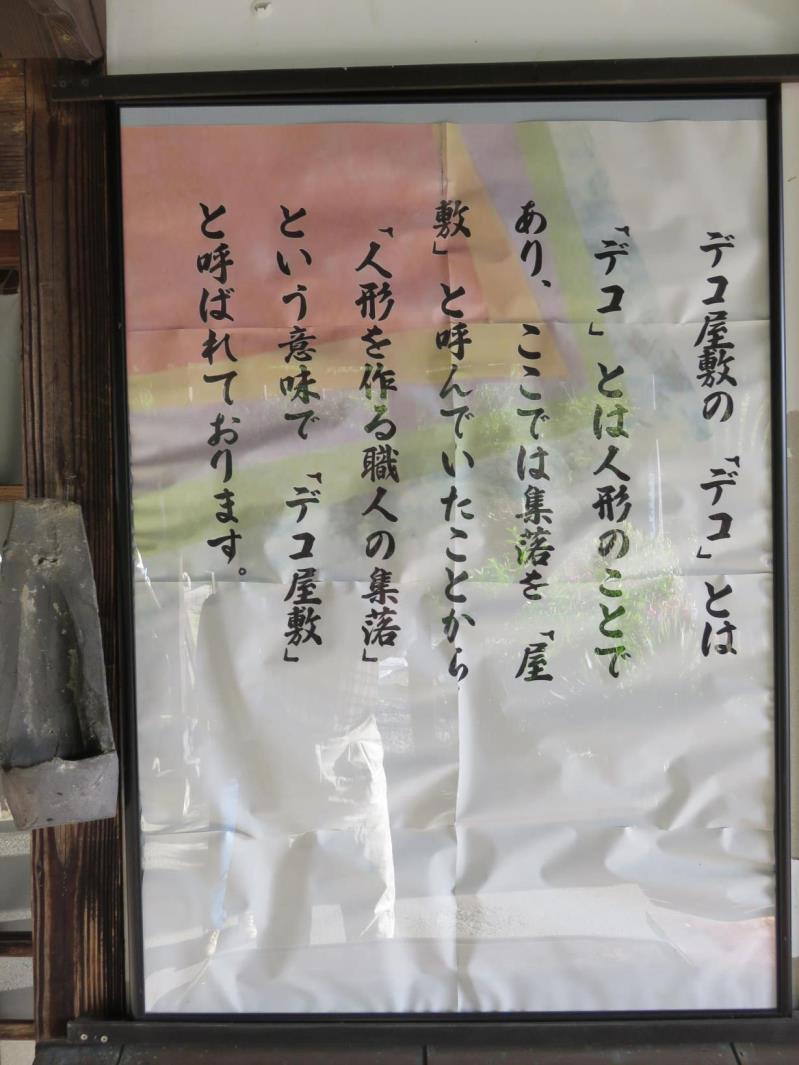 デコ屋敷の「デコ」とは
「デコ」とは人形のことで
あり、ここでは集落を「屋
敷」と呼んでいたことから
「人形を作る職人の集落」
という意味で「デコ屋敷」
と呼ばれております。